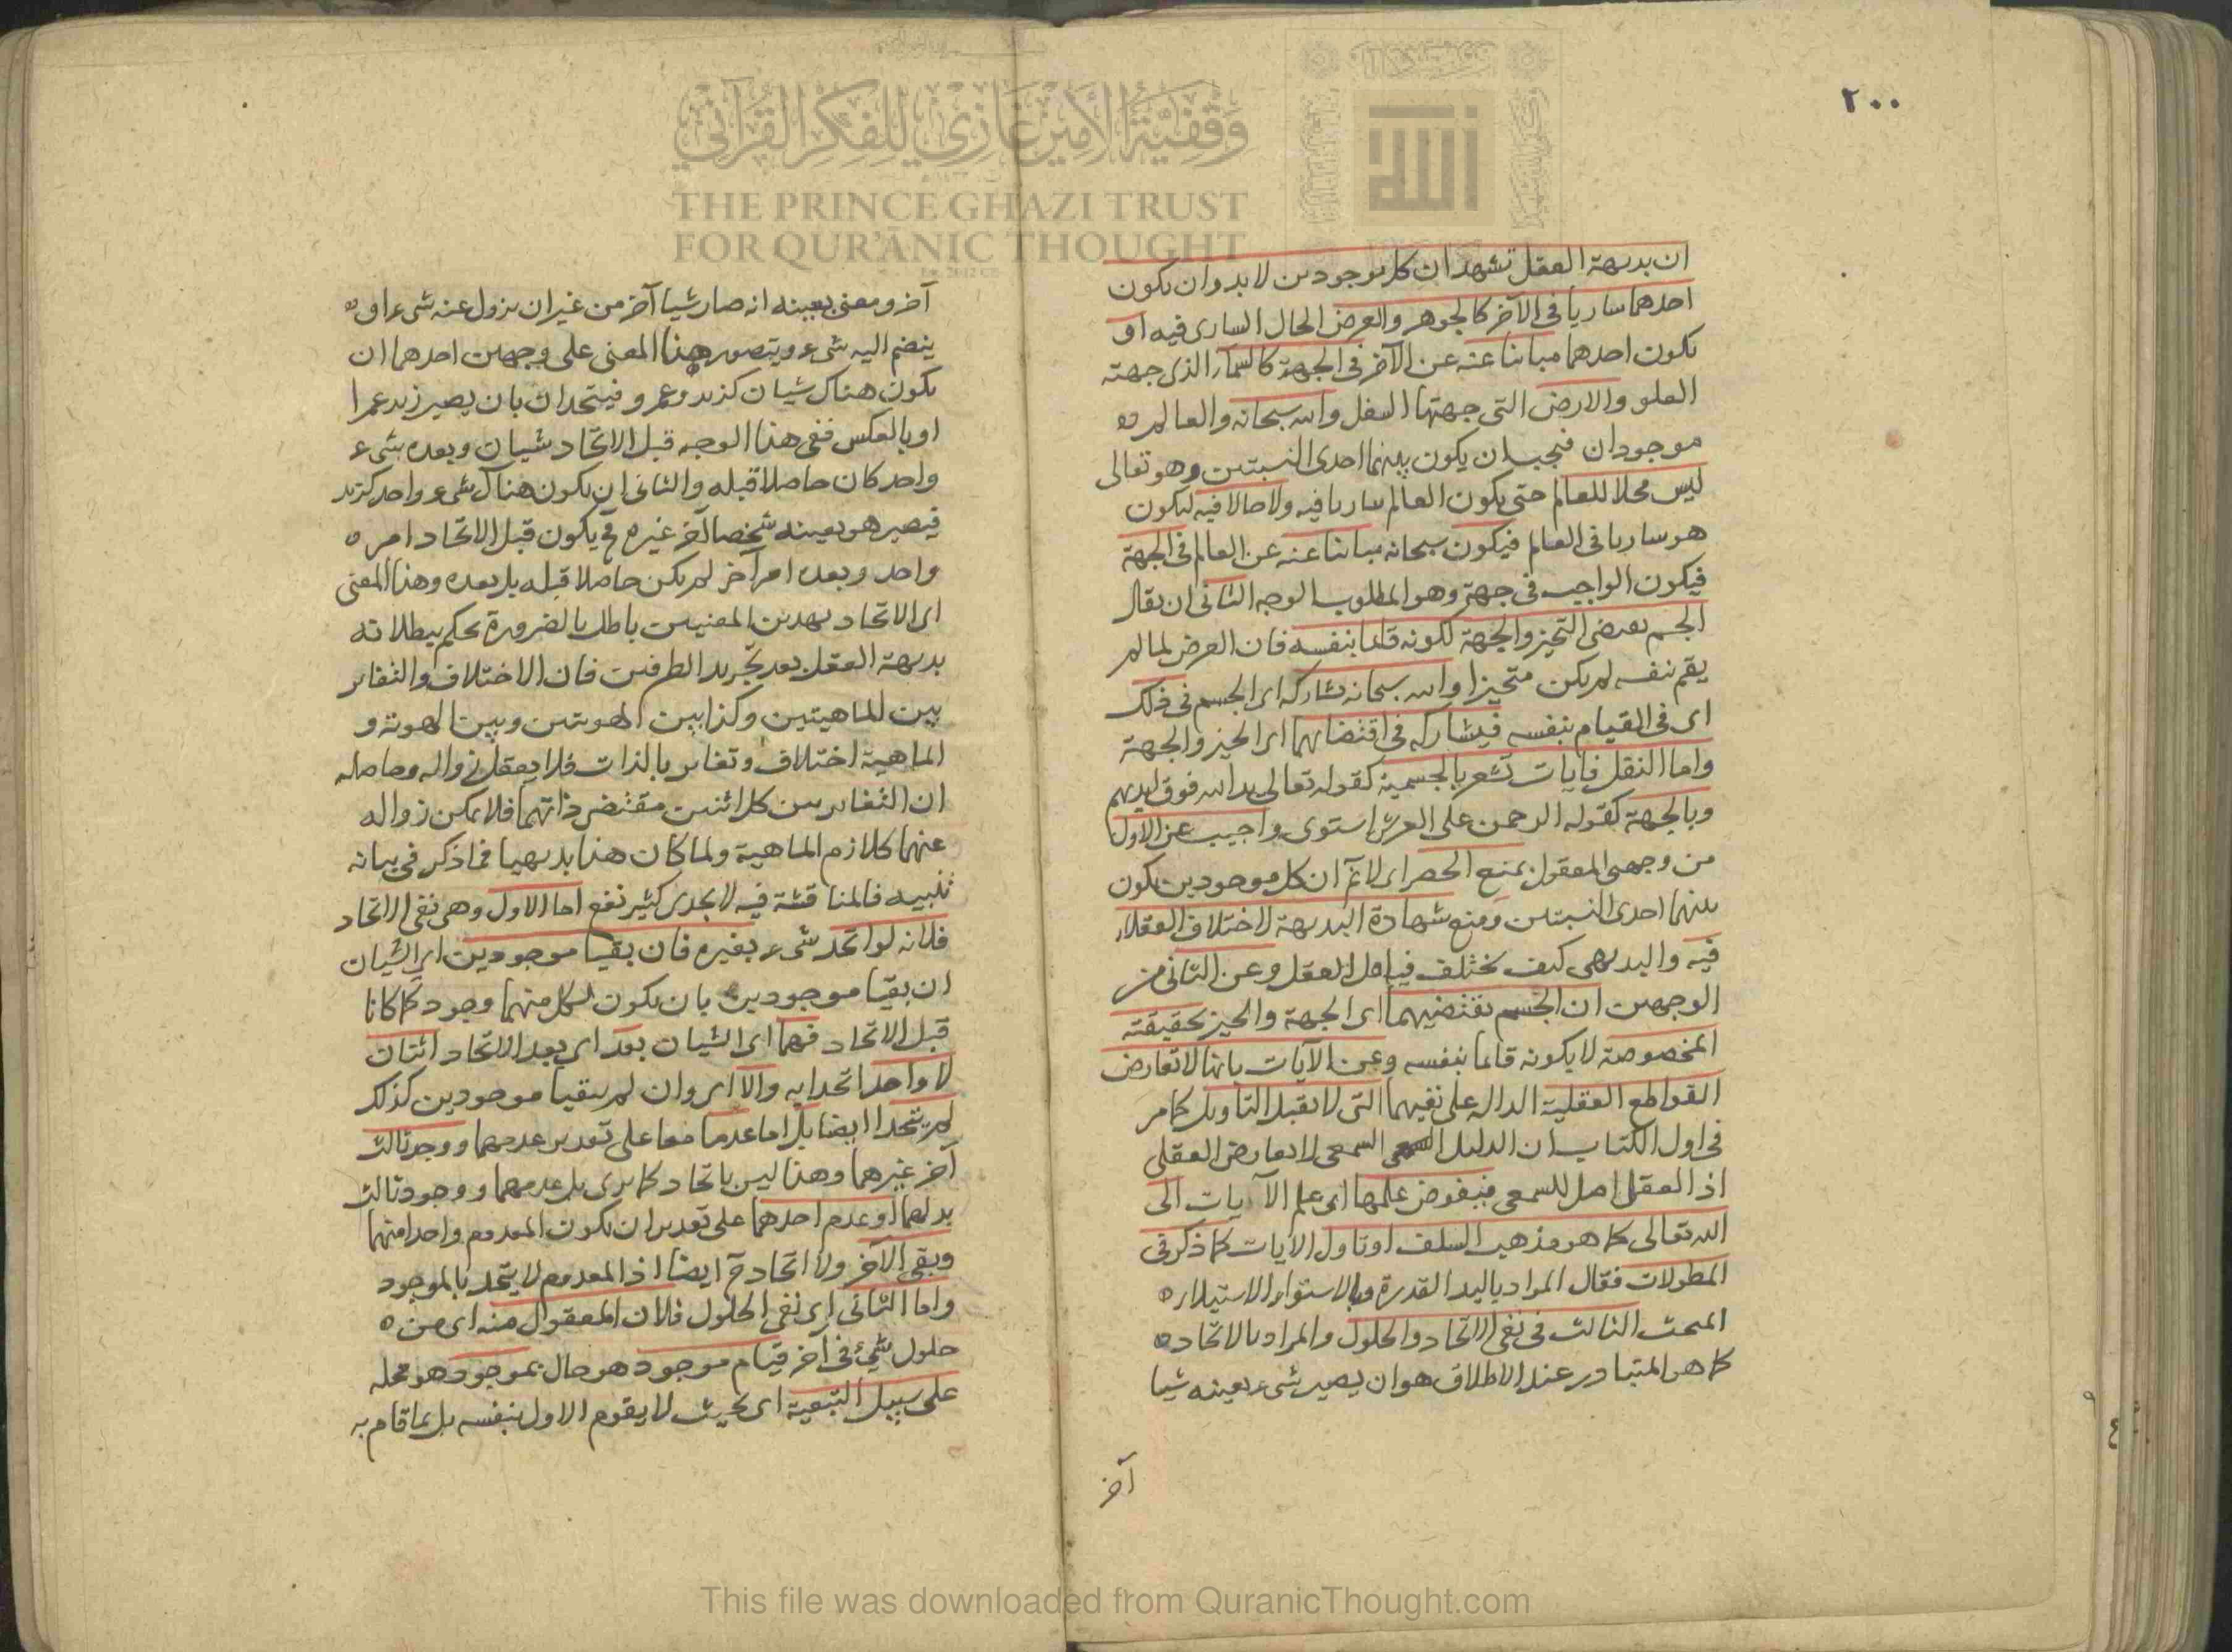 ٢٠٠
ان بديهة العقل تشهد ان كل موجودين لا بد وان يكون
احدهما ساريا في الآخر كالجوهر والعرض الحال الساري فيه او
يكون احدهما مباينا عنه عن الآخر في الجهة كالسماء الذي جهته
العلو والارض التي جهتها السفل والله سبحانه والعالم
موجودان فيجب ان يكون بينهما احدى النسبتين وهو تعالى
ليس محلا للعالم حتى يكون العالم ساريا فيه ولا حالا فيه ليكون
هو ساريا في العالم فيكون سبحانه مباينا عنه عن العالم في الجهة
فيكون الواجب في جهة وهو المطلوب الوجه الثاني ان يقال
الجسم يقتضي التحيز والجهة لكونه قائما بنفسه فان العرض لما لم
يقم بنفسه لم يكن متحيزا والله سبحانه يشاركه اي الجسم في ذلك
اي في القيام بنفسه فيشاركه في اقتضائهما اي الحيز والجهة
واما النقل فآيات تشعر بالجسمية كقوله تعالى يد الله فوق ايديهم
وبالجهة كقوله الرحمن على العرش استوى واجيب عن الاول
من وجهي المعقول بمنع الحصر اي لا نم ان كل موجودين يكون
بينهما احدى النسبتين ومنع شهادة البديهة لاختلاف العقلاء
فيه والبديهي كيف يختلف فيه اهل العقل وعن الثاني من
الوجهين ان الجسم يقتضيهما اي الجهة والحيز بحقيقته
المخصوصة لا بكونه قائما بنفسه وعن الآيات بانها لا تعارض
القواطع العقلية الدالة على نفيهما التي لا تقبل التأويل كما مر
في اول الكتاب ان الدليل السمعي لا يعارض العقلي
اذ العقل اصل للسمعي فيفوض علمها اي علم الآيات الى
الله تعالى كما هو مذهب السلف او تاول الآيات كما ذكر في
المطولات فقال المراد باليد القدرة وبالاستواء الاستيلاء
المبحث الثالث في نفي الاتحاد والحلول والمراد بالاتحاد
كما هو المتبادر عند الاطلاق هو ان يصير شيء بعينه شيا
آخر
آخر ومعنى بعينه انه صار شيا آخر من غير ان يزول عنه شيء او
ينضم اليه شيء ويتصور هذا المعنى على وجهين احدهما ان
يكون هناك شيان كزيد وعمرو فيتحدان بان يصير زيد عمرا
او بالعكس ففي هذا الوجه قبل الاتحاد شيان وبعده شيء
واحد كان حاصلا قبله والثاني ان يكون هناك شيء واحد كزيد
فيصير هو بعينه شخصا آخر غيره فح يكون قبل الاتحاد امر
واحد وبعده امر آخر لم يكن حاصلا قبله بل بعده وهذا المعنى
اي الاتحاد بهذين المعنيين باطل بالضرورة يحكم ببطلانه
بديهة العقل بعد تجريد الطرفين فان الاختلاف والتغاير
بين الماهيتين وكذا بين الهويتين وبين الهوية و
الماهية اختلاف وتغاير بالذات فلا يعقل زواله وحاصله
ان التغاير بين كل اثنين مقتضى ذاتهما فلا يمكن زواله
عنهما كلازم الماهية ولما كان هذا بديهيا فما ذكر في بيانه
تنبيه فالمناقشة فيه لا يجدي كثير نفع اما الاول وهي نفي الاتحاد
فلانه لو اتحد شيء بغيره فان بقيا موجودين اي الشيان
ان بقيا موجودين بان يكون لكل منهما وجود كما كانا
قبل الاتحاد فهما اي الشيان بعد اي بعد الاتحاد اثنان
لا واحد اتحدا به والا اي وان لم يبقيا موجودين كذلك
لم يتحدا ايضا بل اما عدما معا على تقدير عدمهما ووجد ثالث
آخر غيرهما وهذا ليس باتحاد كما يرى بل عدمهما ووجود ثالث
بدلهما او عدم احدهما على تقدير ان يكون المعدوم واحدا منهما
وبقي الآخر ولا اتحاد ح ايضا اذ المعدوم لا يتحد بالموجود
واما الثاني اي نفي الحلول فلان المعقول منه اي من
حلول شيئ في آخر قيام موجود هو حال بموجود هو محله
على سبيل التبعية اي بحيث لا يقوم الاول بنفسه بل بما قام به
وقفية الأمير غازي للفكر القرآني
THE PRINCE GHAZI TRUST
FOR QUR'ĀNIC THOUGHT
الله
This file was downloaded from QuranicThought.com